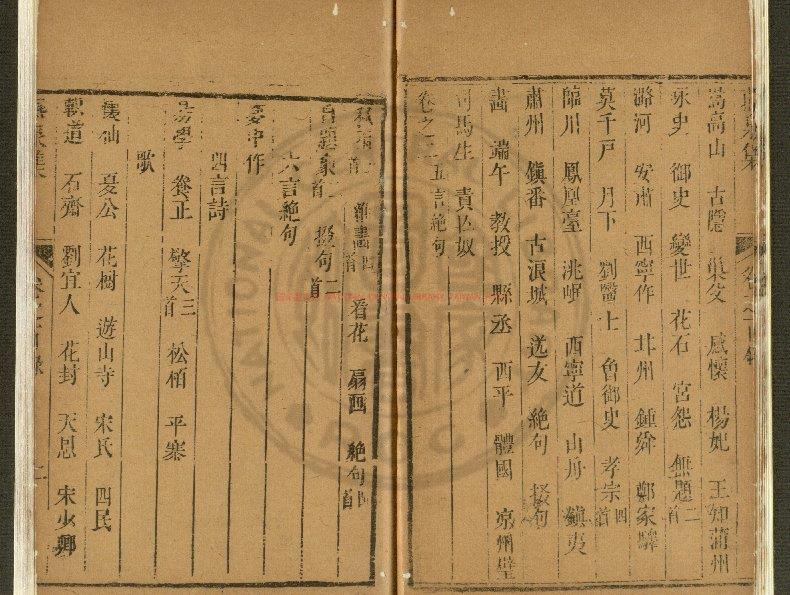 嵩高山 古隱 巢父 感懷 楊妃 王知蒲州
永史 御史 變世 花石 宮怨 無題二首
潞河 安肅 西寧作 井州 鍾舜 鄭家驛
莫千戸 月下 劉醫士 魯御史 孝宗四首
臨川 鳳凰臺 洮岷 西寧道 山丹 鎮夷
肅州 鎮番 古浪城 送友 絶句 掇句
畵 端午 教授 縣丞 西平 體國 凉州壁
司馬生 責仄奴
卷之二 五言絶句
看花 扇四 絶句四首
掇句二首
六言絶句
夢中作
四言詩
易學 養正 擎天三首 松栢 平寨
歌
夏公 花樹 遊山寺 宋氏 四民
載道 石齋 劉宜人 花封 天恩 宋少卿